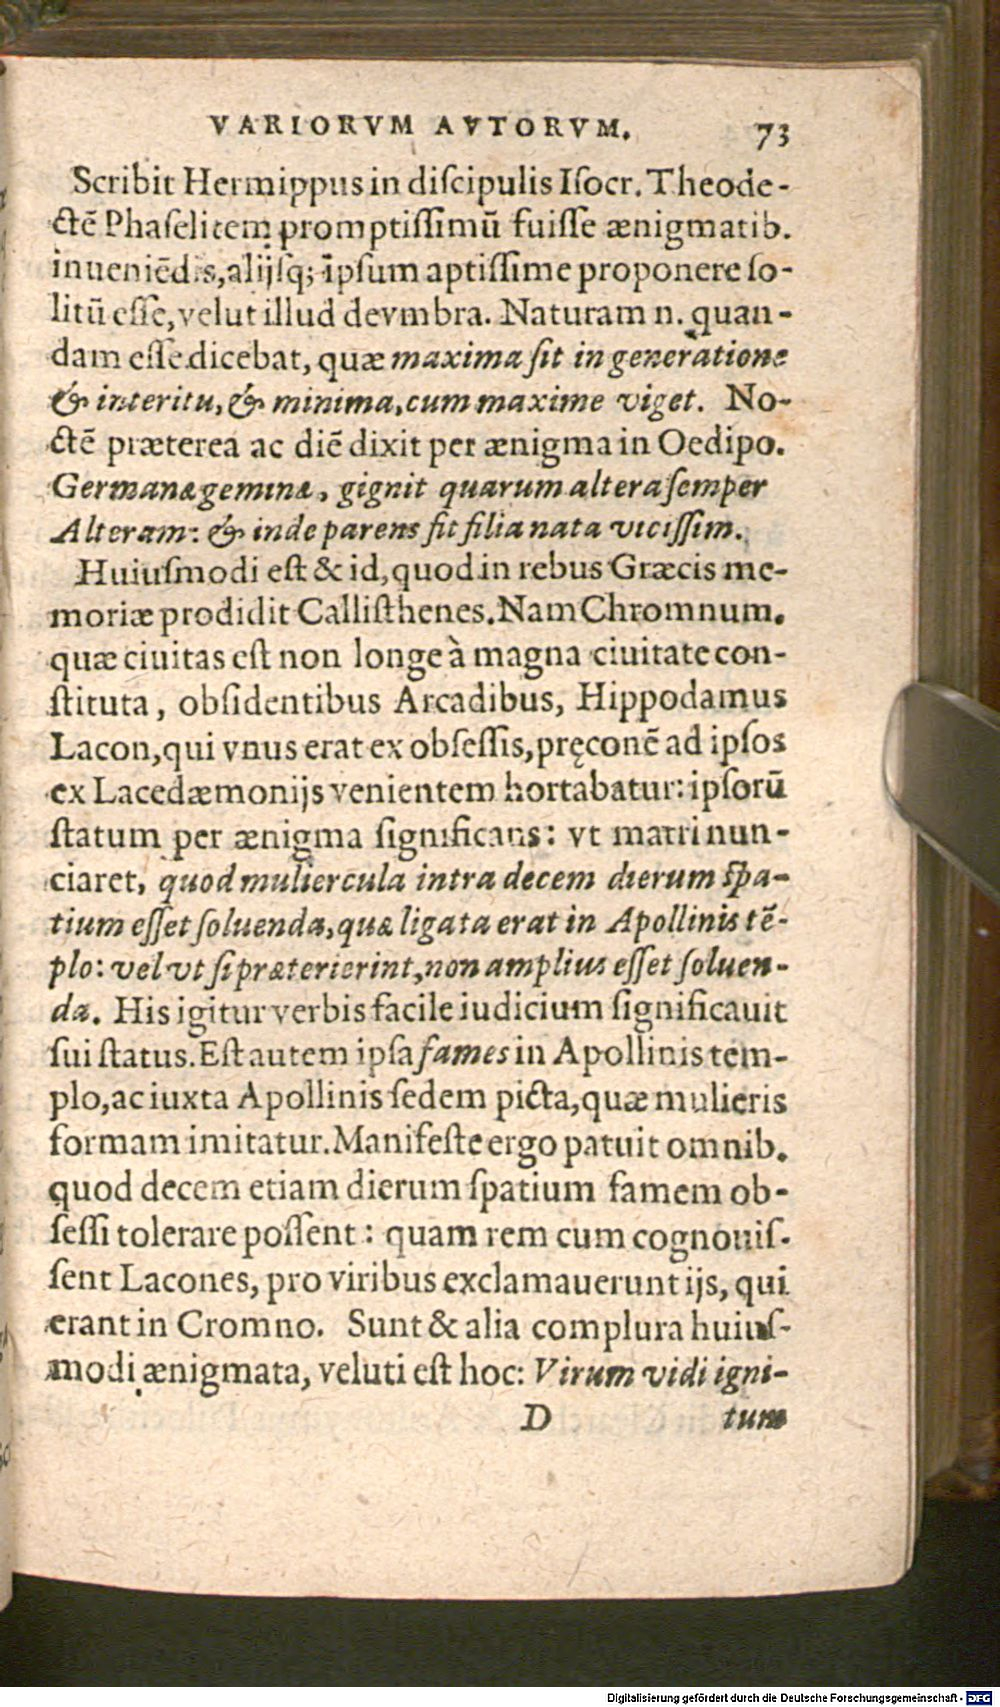 VARIORVM AVTORVM. 73
Scribit Hermippus in diſcipulis Iſocr. Theode-
ctē Phaſelitem promptiſſimū fuiſſe ænigmatib.
inueniēdis, alijſq; ipſum aptiſſime proponere ſo-
litū eſſe, velut illud de vmbra. Naturam n. quan-
dam eſſe dicebat, quæ maxima ſit in generatione
& interitu, & minima, cum maxime viget. No-
ctē præterea ac diē dixit per ænigma in Oedipo.
Germanæ geminæ, gignit quarum altera ſemper
Alteram: & inde parens fit filia nata viciſſim.
Huiuſmodi eſt & id, quod in rebus Græcis me-
moriæ prodidit Calliſthenes. Nam Chromnum.
quæ ciuitas eſt non longe à magna ciuitate con-
ſtituta, obſidentibus Arcadibus, Hippodamus
Lacon, qui vnus erat ex obſeſſis, pręconē ad ipſos
ex Lacedæmonijs venientem hortabatur: ipſorū
ſtatum per ænigma ſignificans: vt matri nun-
ciaret, quod muliercula intra decem dierum ſpa-
tium eſſet ſoluenda, quæ ligata erat in Apollinis tē-
plo: vel vt ſi præterierint, non amplius eſſet ſoluen-
da. His igitur verbis facile iudicium ſignificauit
ſui ſtatus. Eſt autem ipſa fames in Apollinis tem-
plo, ac iuxta Apollinis ſedem picta, quæ mulieris
formam imitatur. Manifeſte ergo patuit omnib.
quod decem etiam dierum ſpatium famem ob-
ſeſſi tolerare poſſent: quam rem cum cognouiſ-
ſent Lacones, pro viribus exclamauerunt ijs, qui
erant in Cromno. Sunt & alia complura huiuſ-
modi ænigmata, veluti eſt hoc: Virum vidi igni-
D tum
Digitalisierung gefördert durch die Deutsche Forschungsgemeinschaft - DFG